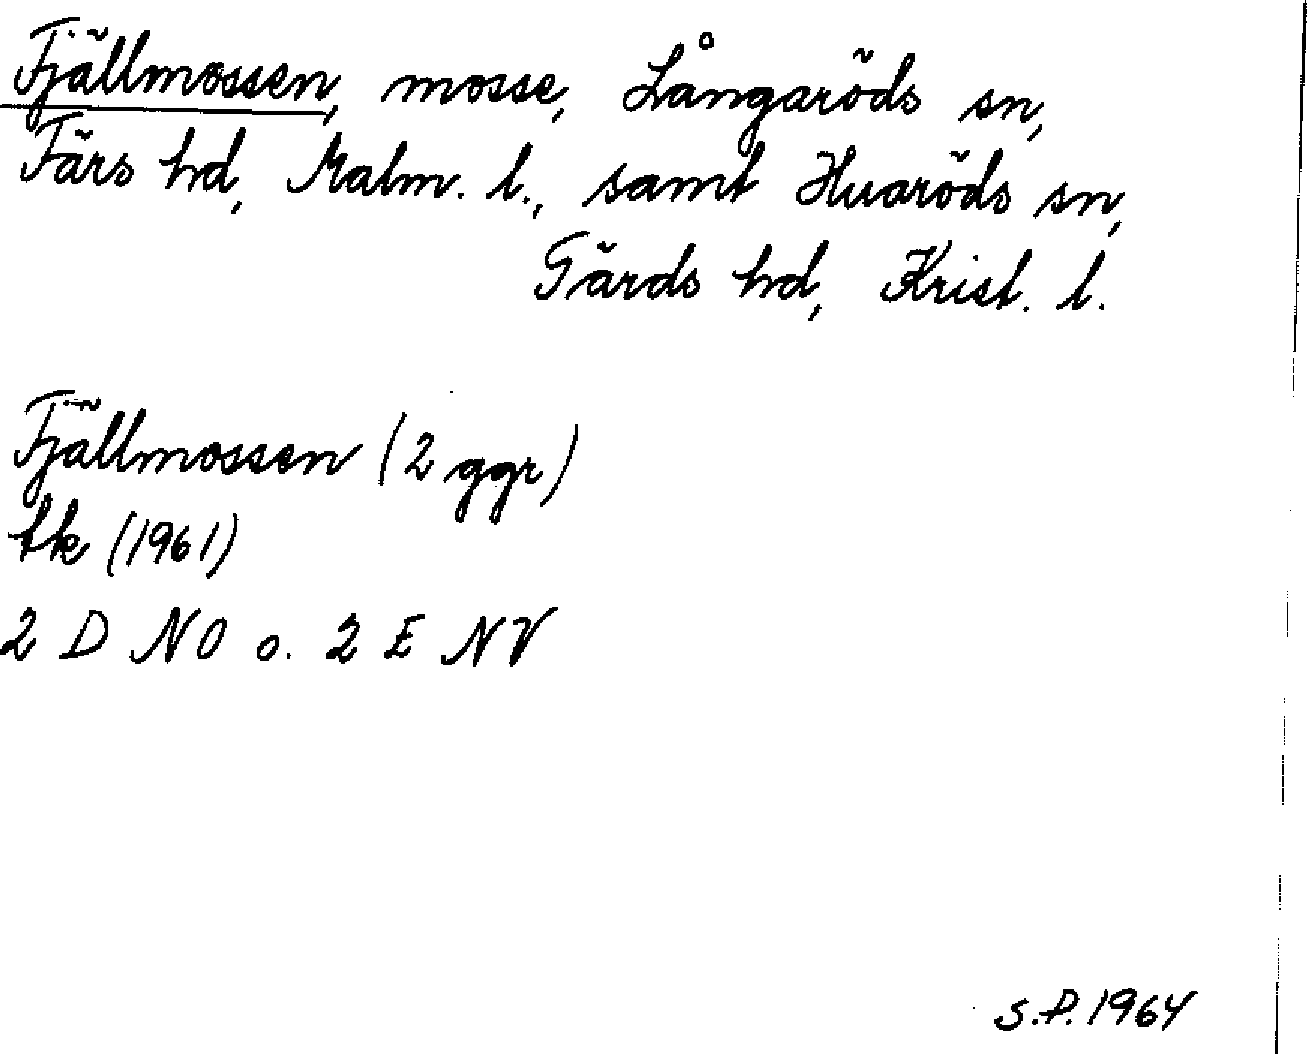 Fjällmossen, mosse, Långaröds sn,
Färs hd, Malm. l., samt Huaröds sn,
Gärds hd, Krist. l.
Fjällmossen (2 ggr)
tk (1961)
2 D NO o. 2 E NV
S.P. 1964